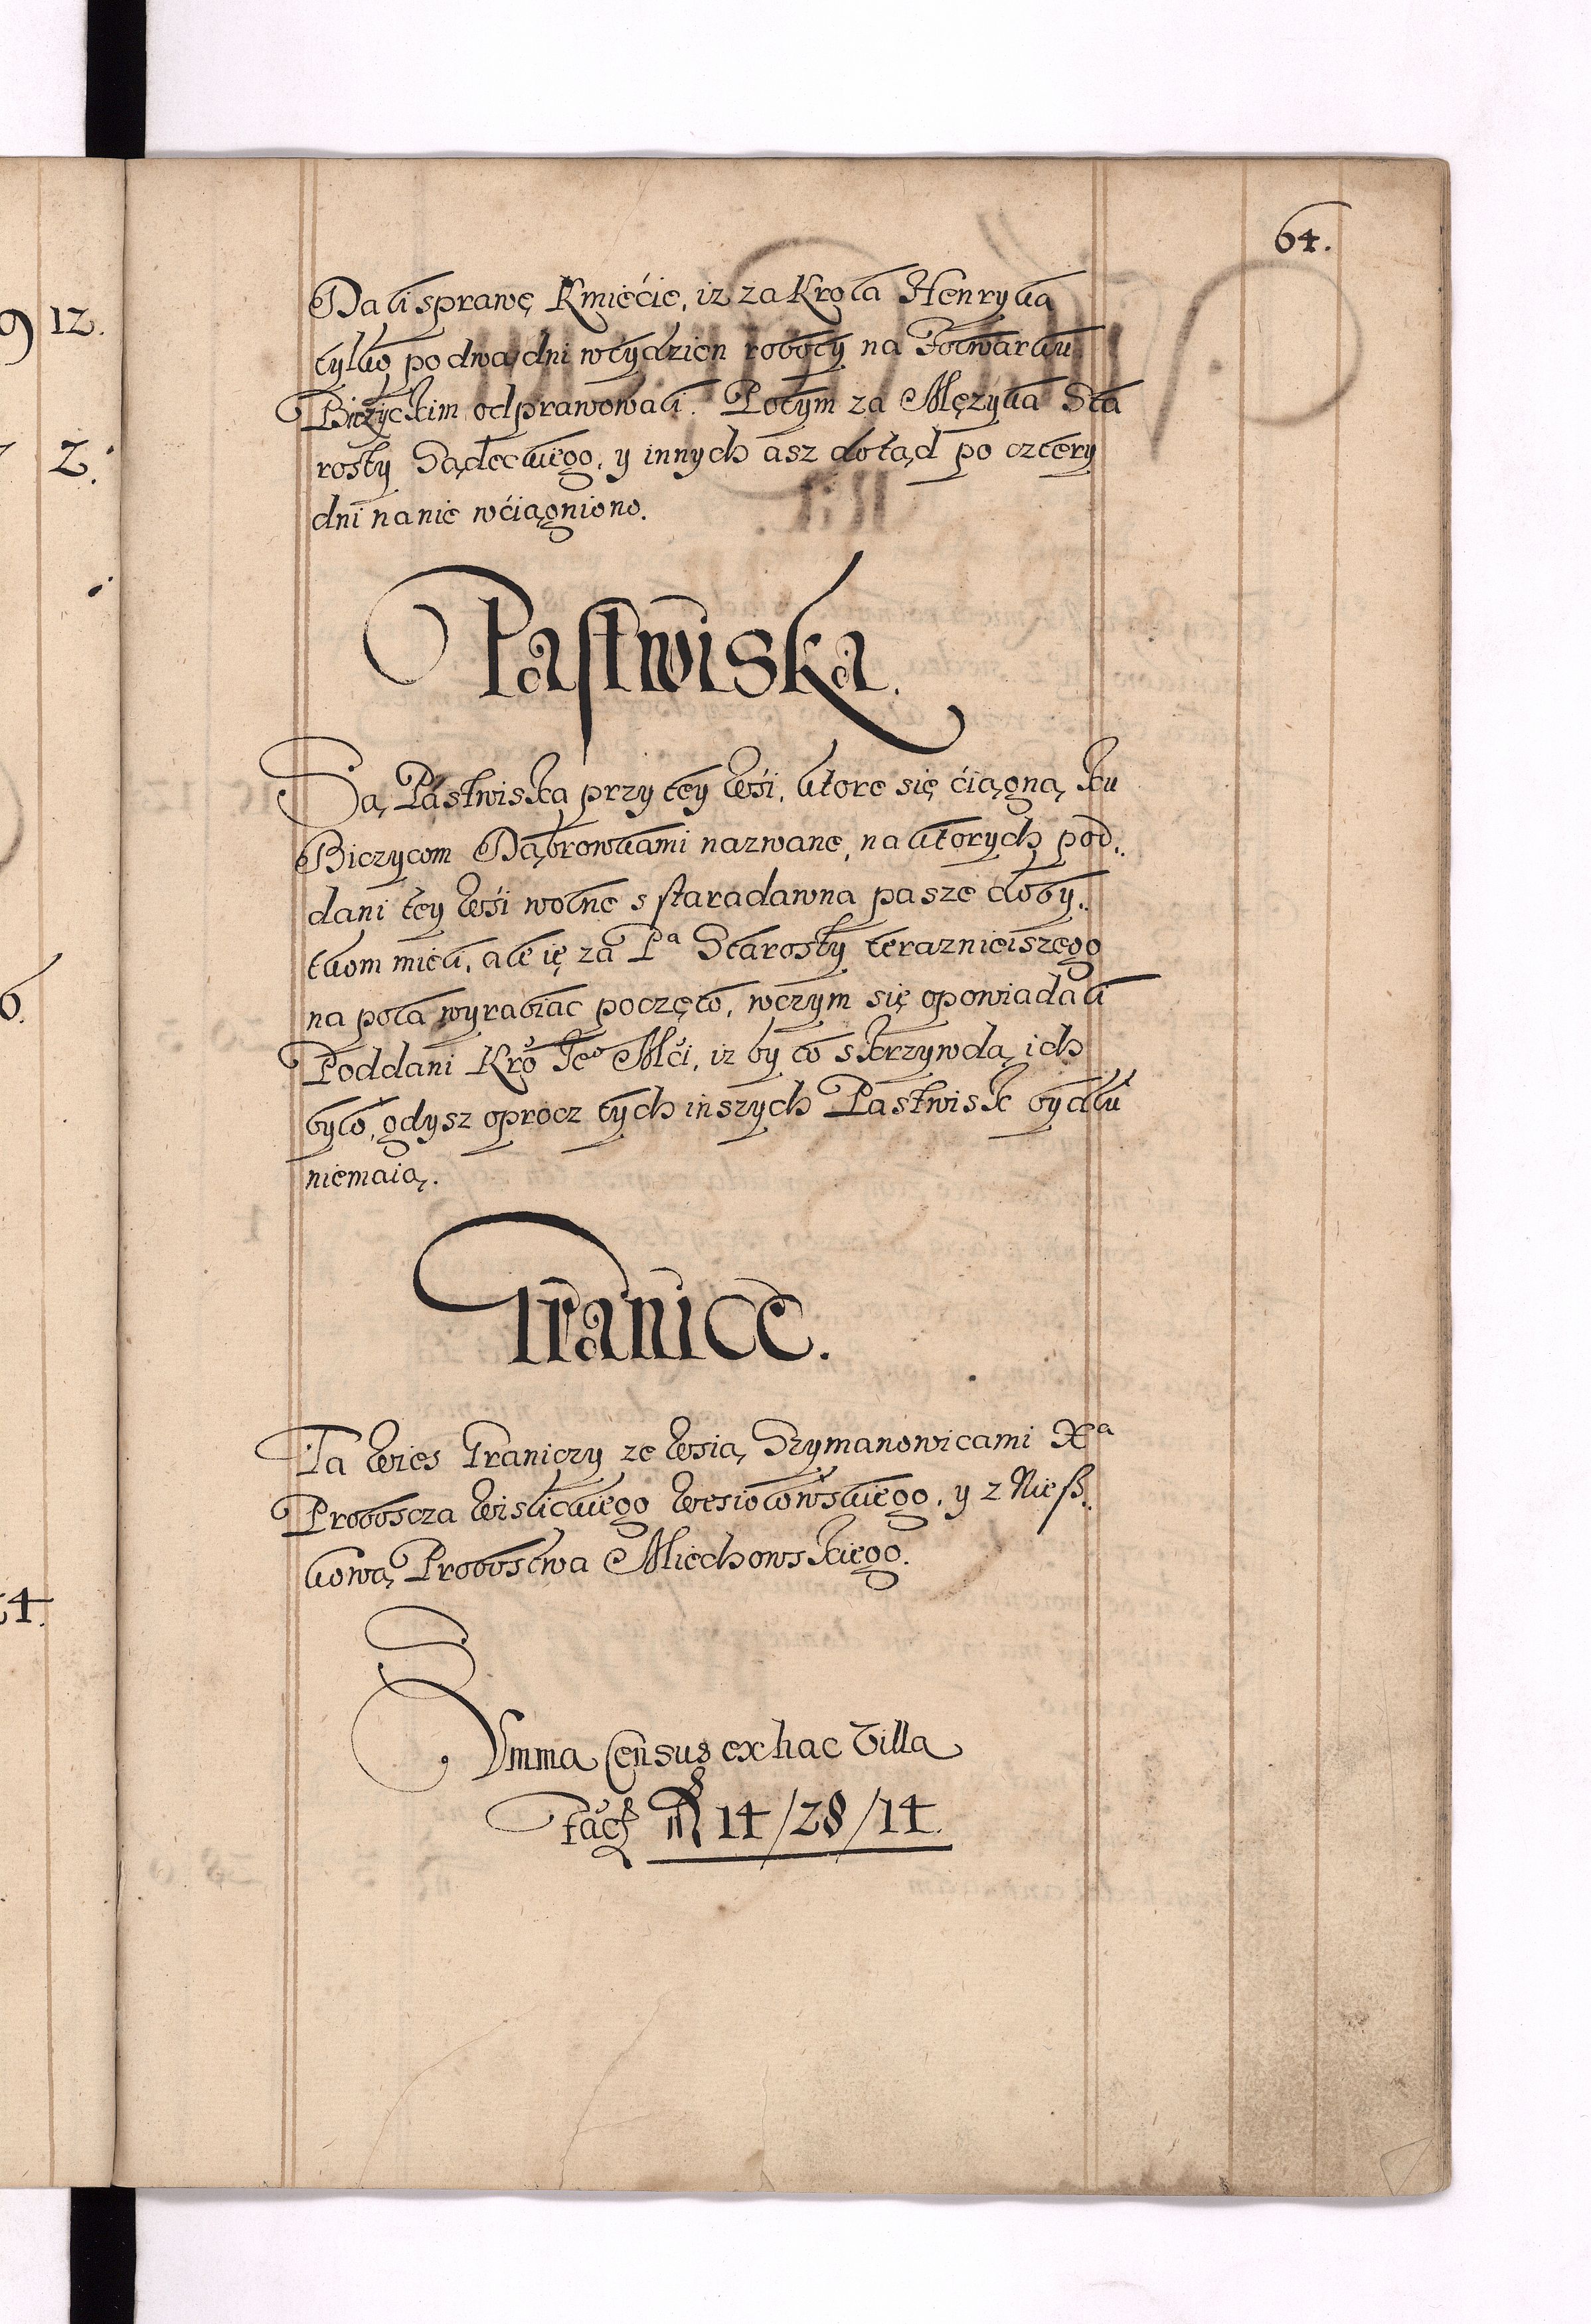 64.
Dali sprawę Kmiećie, iz za Krola Henryka
tylko po dwa dni w tydzien roboty na Folwarku
Biczyckim odprawowali. Potym za Mężyka Sta
rosty Sądeckiego, y innych asz dotąd po cztery
dni na nie wćiągniono.
Pastwiska.
Są Pastwiska przy tey Wśi, ktore się ćiągną ku
Biczycom Dąbrowkami nazwane, na ktorych pod..
dani tey Wśi wolne s staradawna pasze doby..
tkom mieli, ale ię za Pª Starosty teraznieiszego
na pola wyrabiac poczęto, w czym się opowiadali
Poddani Kro Jeº Mći, iz by to s krzywdą ich
było, gdysz oprocz tych inszych Pastwisk bydłu
niemaią.
Granice.
Ta Wies Graniczy ze Wsią Szymanowicami Xª
Proboscza Wislickiego Wesiołowskiego, y z Nieß..
kową Probostwa Miechowskiego.
Summa Census ex hac Villa
facit 14/28/14.
9 12.
2.
6.
14.